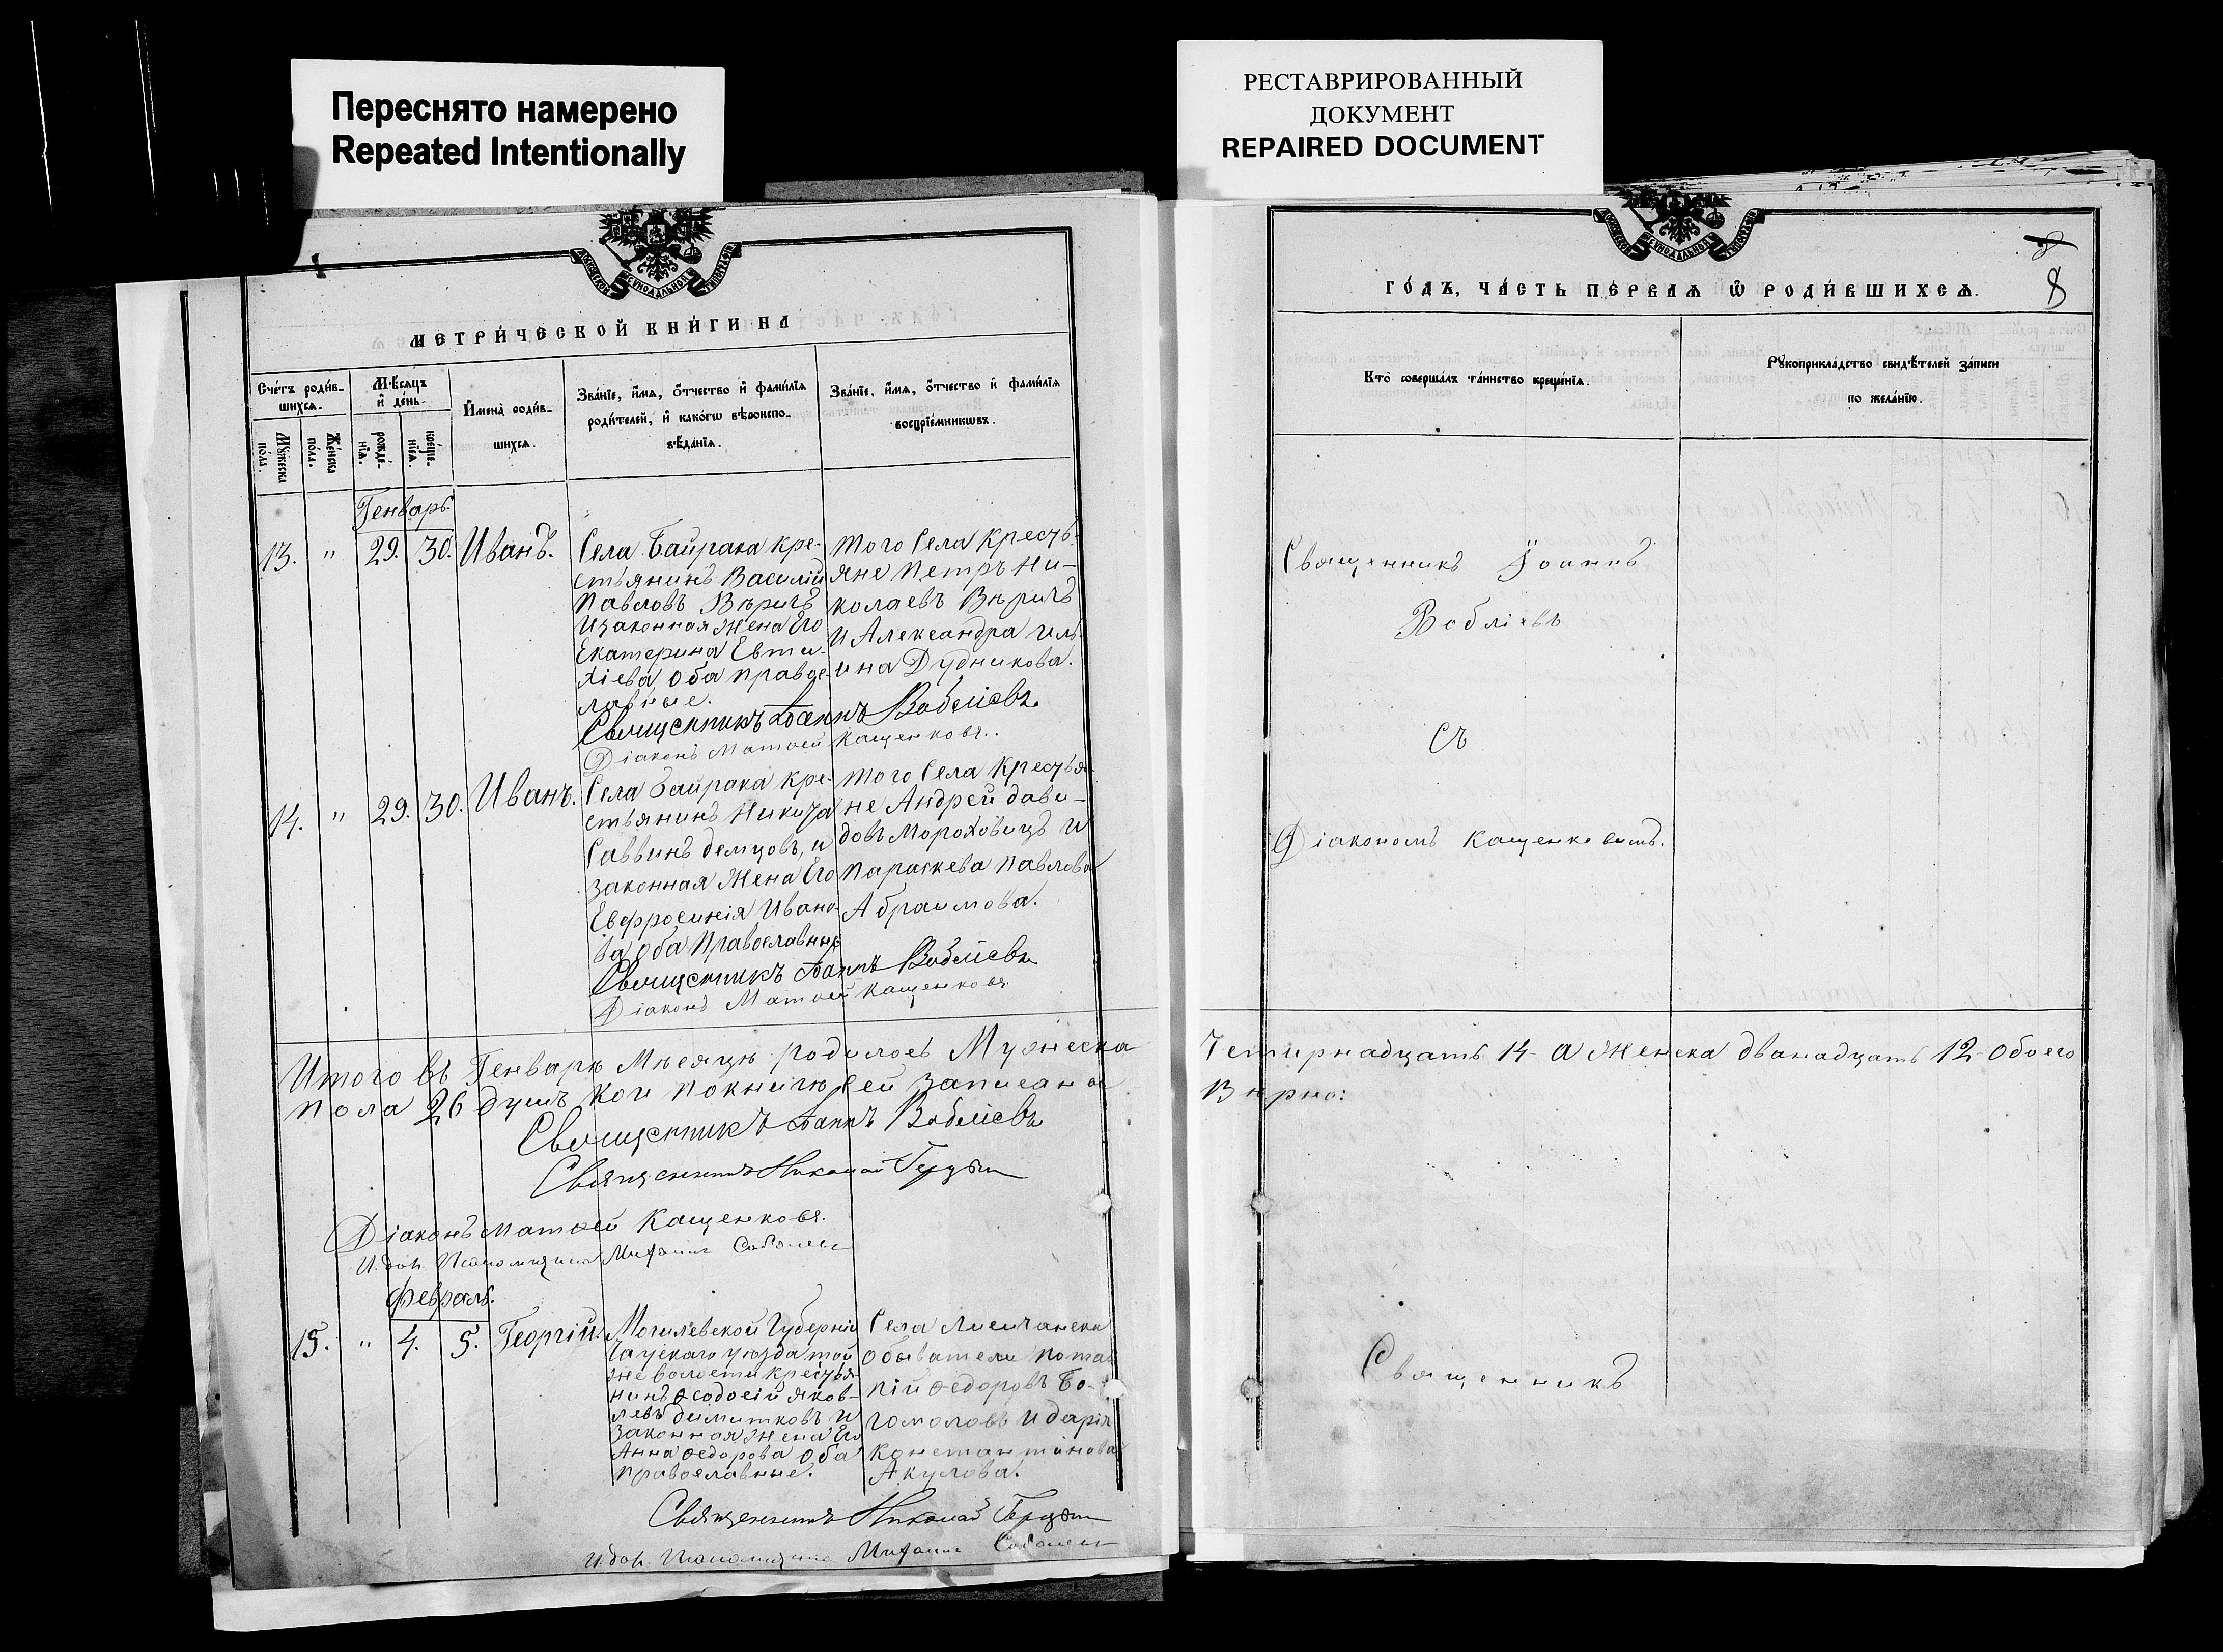 Переснято намерено
Repeated Intentionally
РЕСТАВРИРОВАННЫЙ
ДОКУМЕНТ
REPAIRED DOCUMENT
МЕТРИ́ЧЕСКОЙ КНИ́ГИ НА
Сче́тъ роди́в-
шихсѧ.
Мѣ́сѧцъ
и҆ де́нь.
Мꙋ́жеска
по́ла.
Же́нска
по́ла.
рожде́-
нїѧ.
креще́-
нїѧ.
И҆мена̀ роди́в-
шихсѧ.
Зва́нїе, и҆́мѧ, ѻ҆́тчество и҆ фами́лїѧ
роди́телей, и҆ како́гѡ вѣроиспо-
вѣ́данїѧ.
Зва́нїе, и҆́мѧ, ѻ҆́тчество и҆ фами́лїѧ
воспрїе́мникѡвъ.
Генварь.
13. " 29. 30. Иванъ.
Села Байрака кре-
стьянинъ Василій
Павловъ Вѣричъ
И законная жена Его
Екатерина Евти-
хіева, оба правос-
лавные.
того Села Кресть-
яне Петръ Ни-
колаевъ Вѣричъ
и Александра Иль-
ина Дудникова.
Священникъ Іоаннъ Вобліевъ
Діаконъ Матѳей Кащенковъ.
14. " 29. 30. Иванъ.
Села Байрака кре-
стьянинъ Никита
Саввинъ Демцовъ, и
законная Жена Его
Евфросинія Ивано-
ва, оба Православные
того Села Крестья-
не Андрей Дави-
довъ Мороховецъ И
Параскева Павлова
Абраимова.
Священникъ Іоаннъ Вобліевъ
Діаконъ Матѳей Кащенковъ
Итого въ Генварѣ Мѣсяцѣ родилось Мужеска
пола 26 душъ кои покнигѣ сей записаны
Священникъ Іоаннъ Вобліевъ
Священникъ Николай
Діаконъ Матѳей Кащенковъ.
И. дол. Псаломщика Михаилъ
Февраль.
15. " 4. 5. Георгій.
Могилевской Губерніи
Чаускаго уѣзда той
же волости крестья-
нинъ Ѳеодосій Яков-
левъ Димитковъ и
законная Жена Его
Анна Ѳедорова оба
православные.
Села Лисичанска
Обыватели Пота-
пій Ѳедоровъ Бо-
гомоловъ и Дарія
Константинова
Акулова.
Священникъ Николай
И. дол. Псаломщика Михаилъ
8
ГО́ДЪ, ЧА́СТЬ ПЕ́РВАѦ Ѡ҆ РОДИ́ВШИХСѦ.
8
Кто̀ соверша́лъ та́инство креще́нїѧ.
Рꙋкоприкла́дство свидѣ́телей за́писи
по жела́нїю.
Священникъ Іоаннъ
Вобліевъ
Съ
Діакономъ Кащенковымъ.
Четырнадцать 14 а Женска двѣнадцать 12 Обоего
Вѣрно:
Священникъ